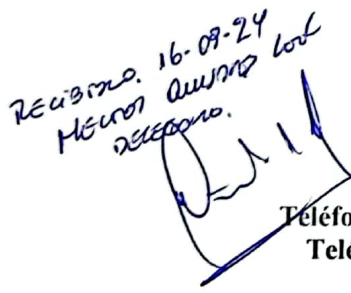 RECIBIDO. 16-09-24
HECTOR
DELEGADO.
Teléfo
Telé